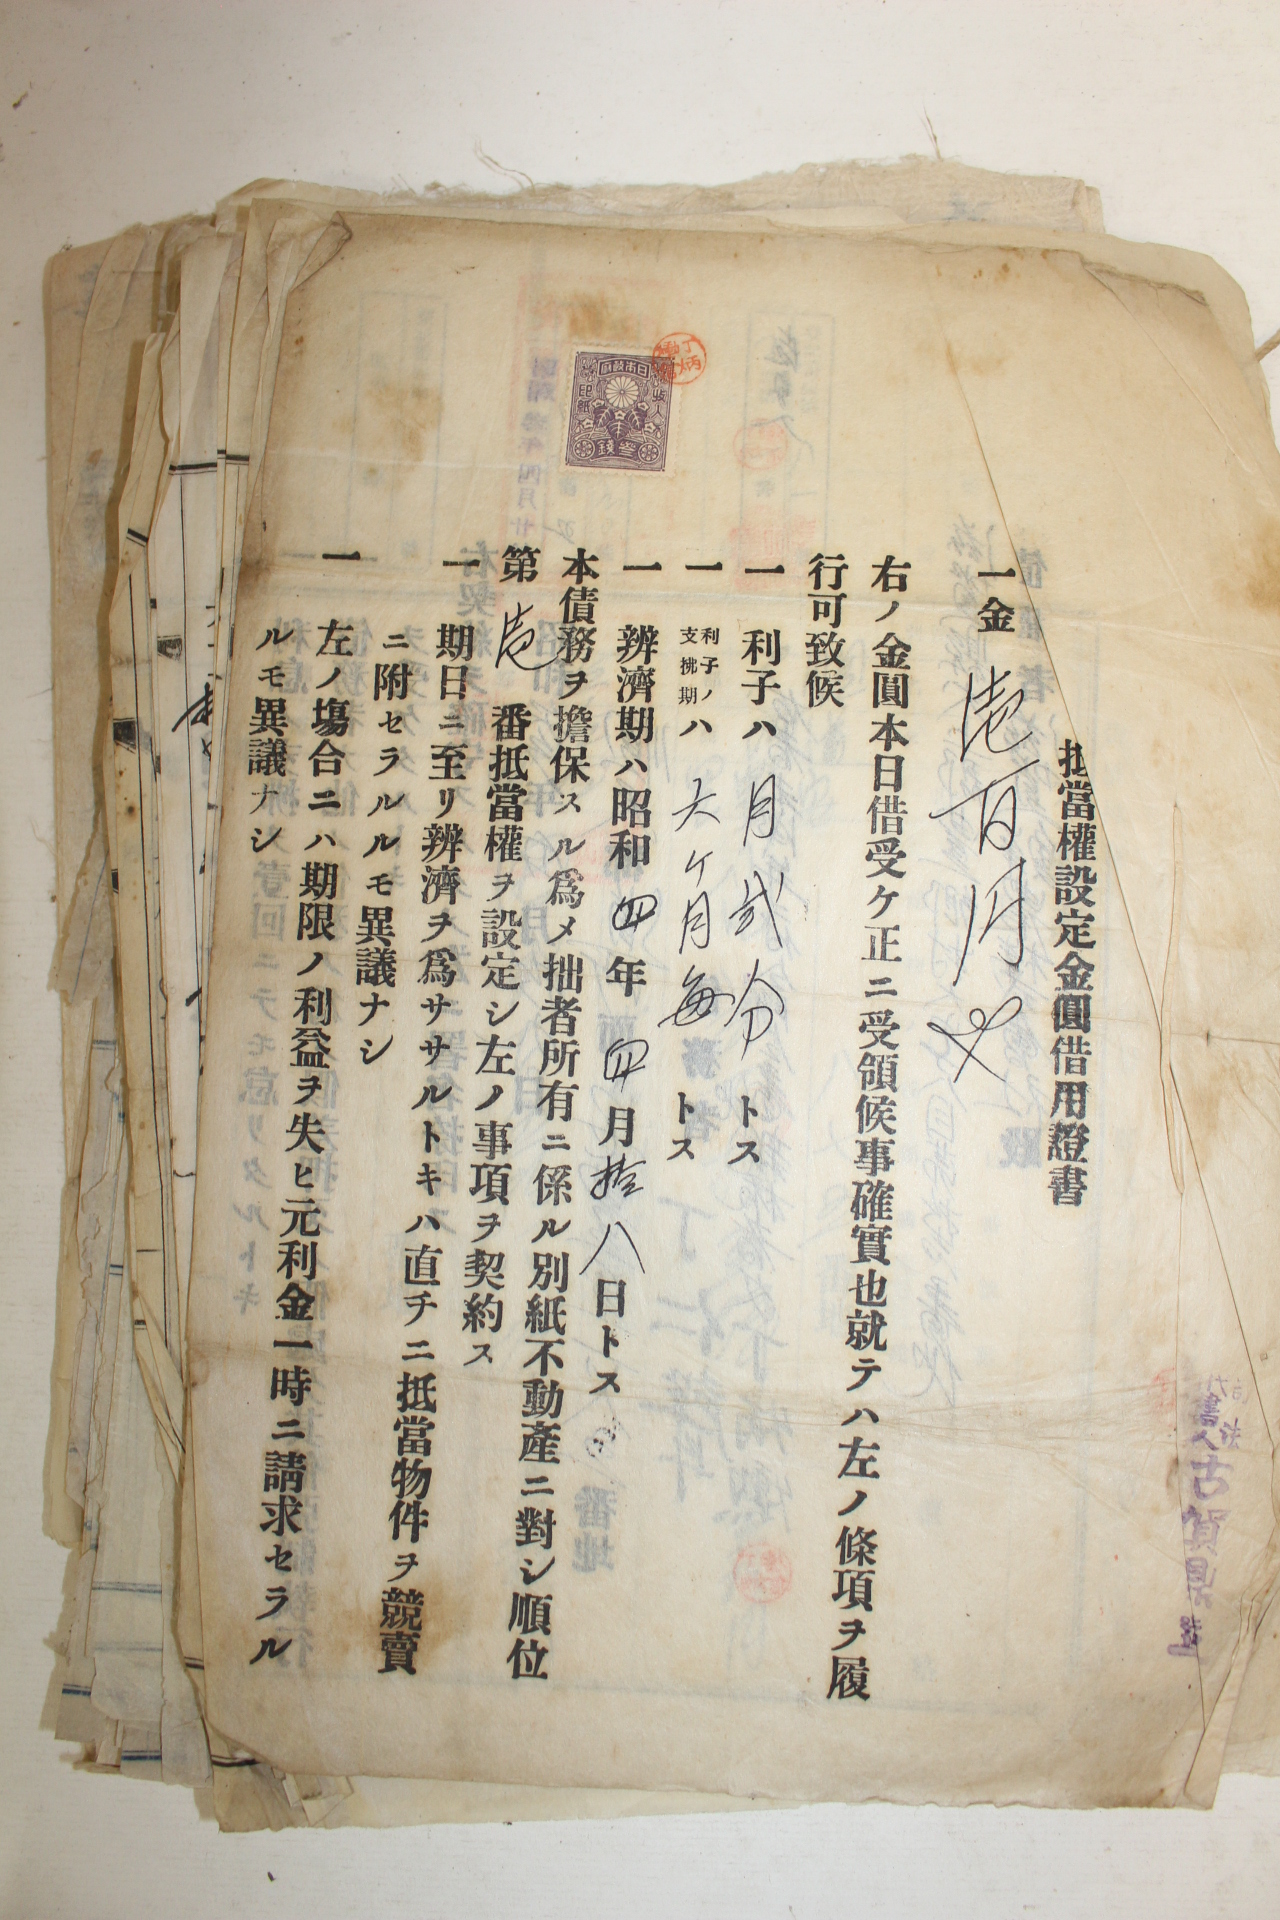 抵當權設定金圓借用證書
一金 壱百円也
右ノ金圓本日借受ケ正ニ受領候事確實也就テハ左ノ條項ヲ履
行可致候
一 利子ハ 月貳分 トス
一 利子ノ支拂期ハ 六ケ月毎 トス
一 辨濟期ハ昭和四年四月拾八日トス
本債務ヲ擔保スル爲メ拙者所有ニ係ル別紙不動產ニ對シ順位
第壱番抵當權ヲ設定シ左ノ事項ヲ契約ス
一 期日ニ至リ辨濟ヲ爲ササルトキハ直チニ抵當物件ヲ競賣
ニ附セラルルモ異議ナシ
一 左ノ塲合ニハ期限ノ利益ヲ失ヒ元利金一時ニ請求セラル
ルモ異議ナシ
日本政府
收入印紙
參錢
司法代書人古賀
番地